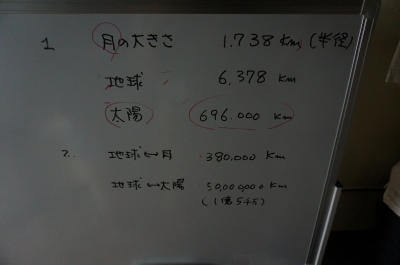 1 月の大きさ 1.738 km (半径)
地球 6,378 km
太陽 696.000 km
2. 地球↔月 380,000 km
地球↔太陽 150,000,000 km
(1億5千万)